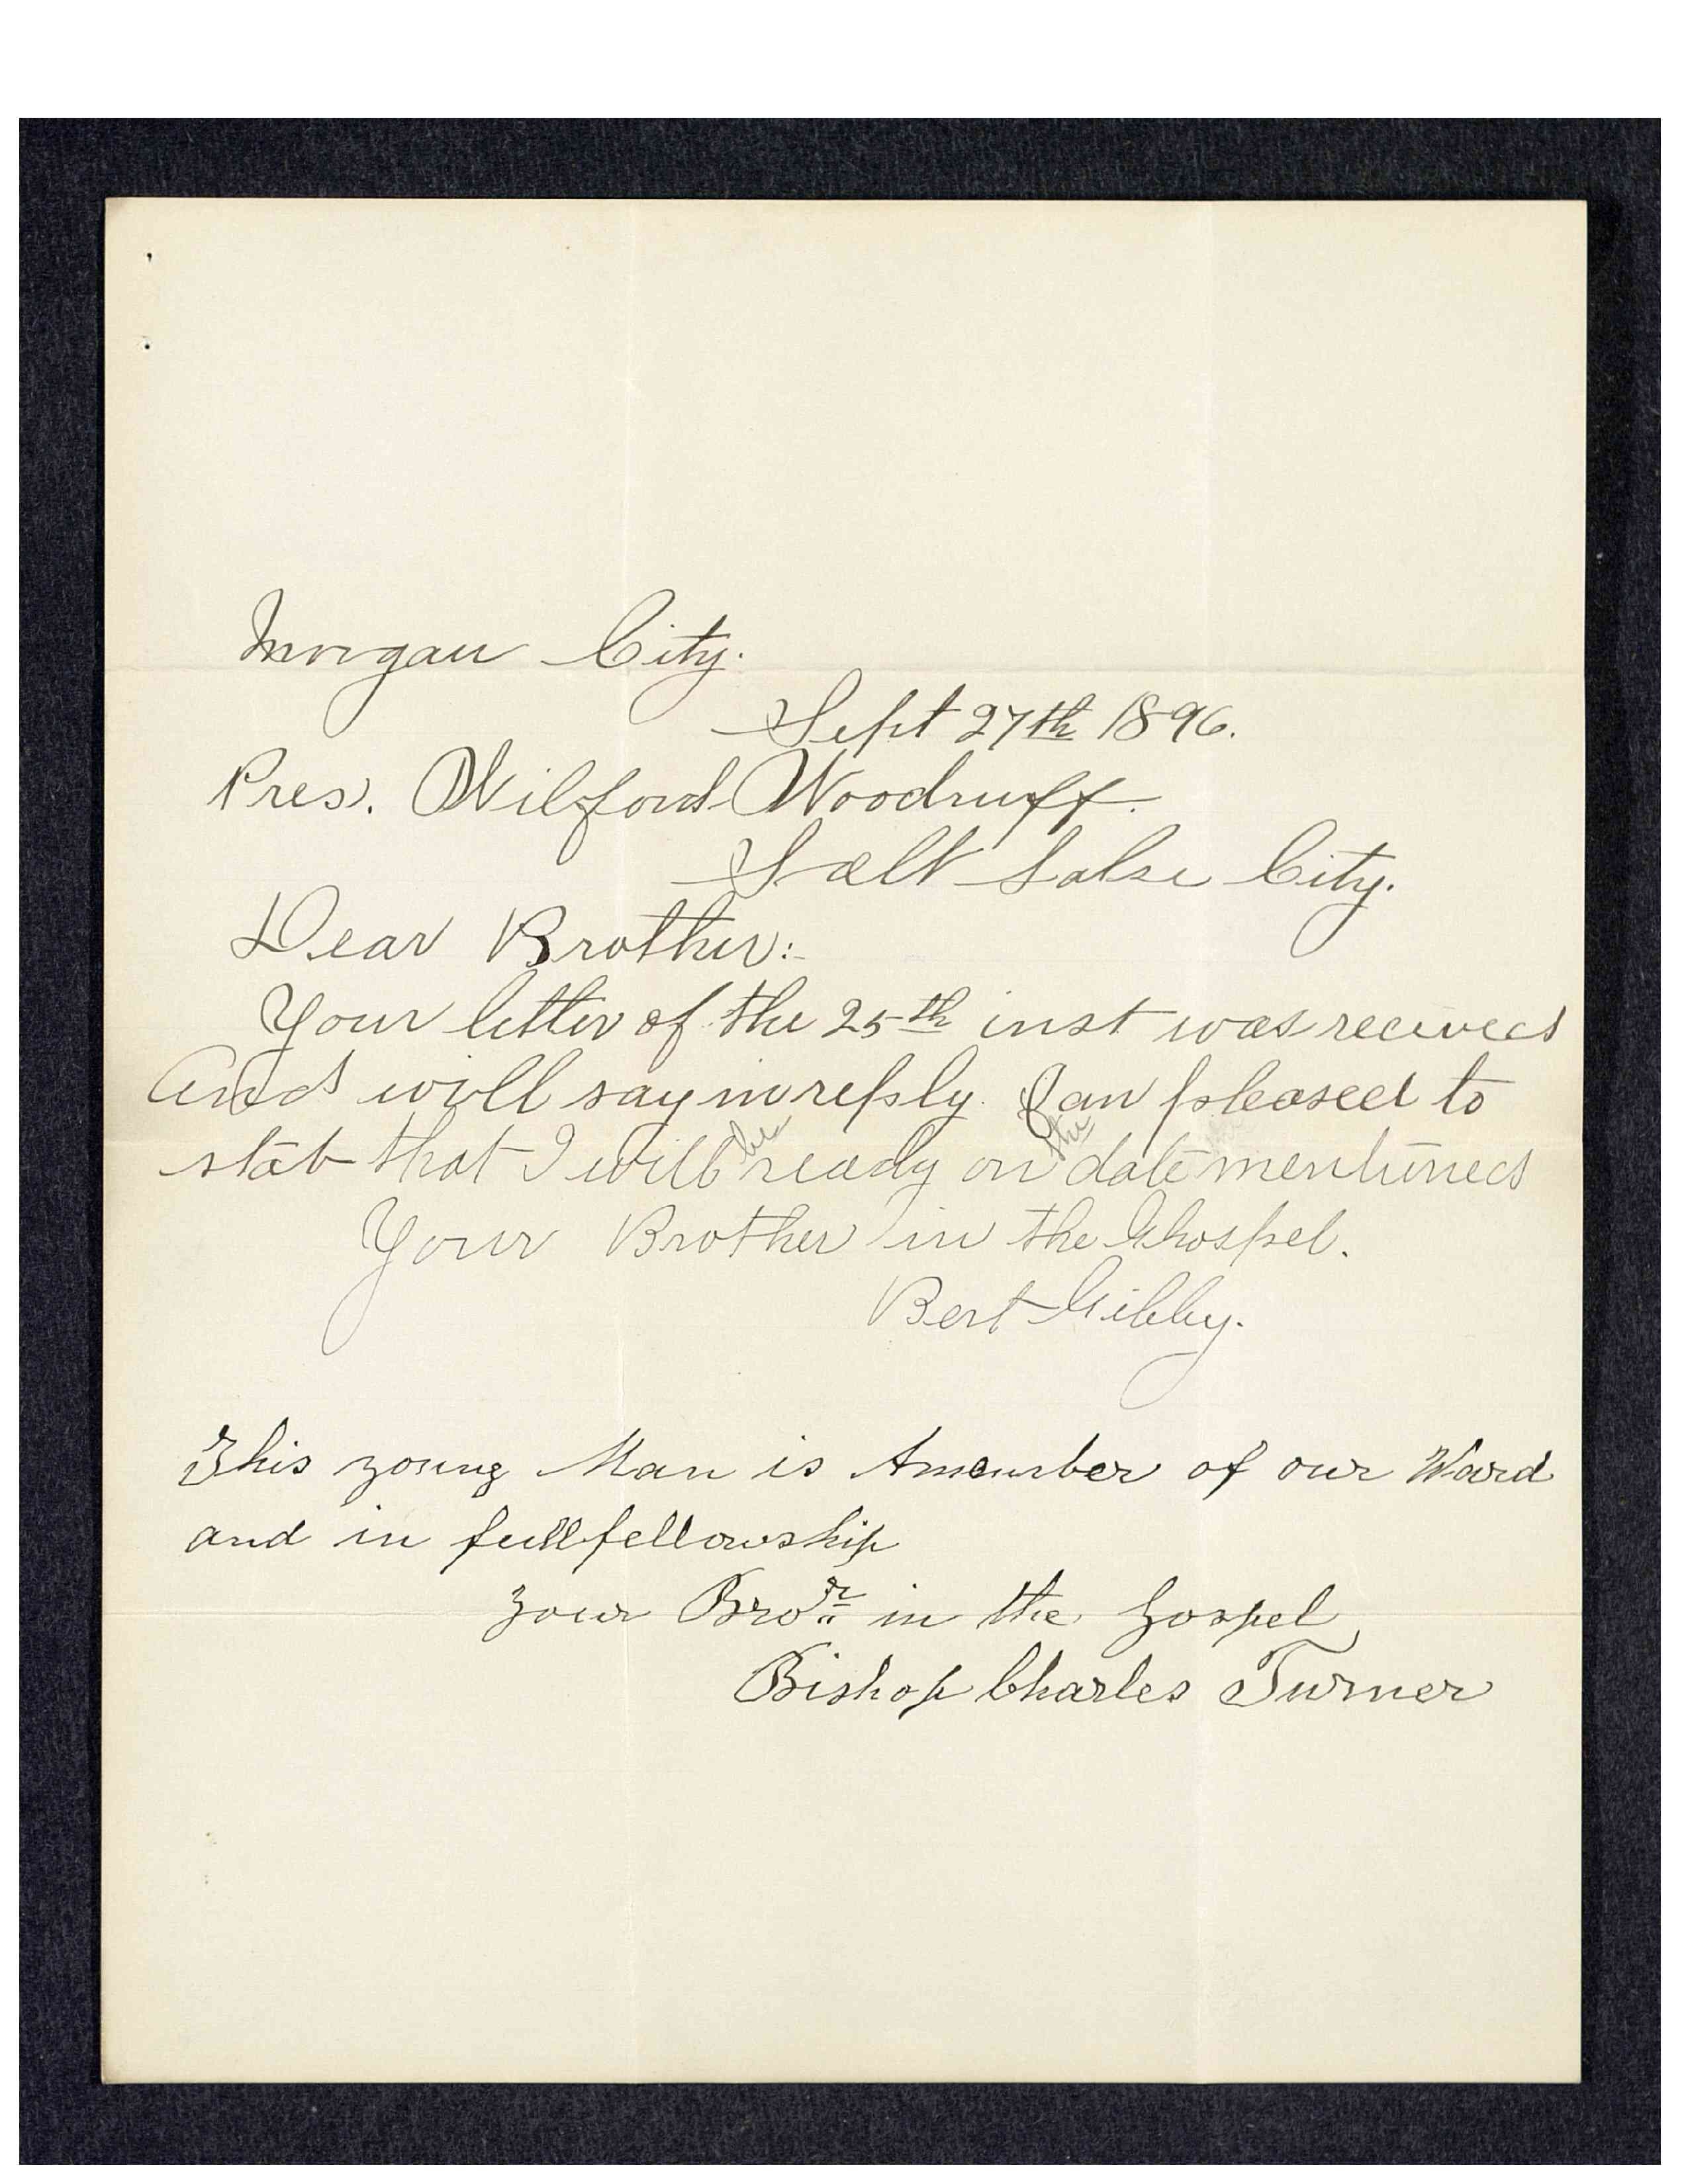 Morgan City.
Sept 27th 1896.
Pres. Wilford Woodruff.
Salt Lake City.
Dear Brother:-
Your letter of the 25th inst was recived
And will say in reply. I am pleased to
stat that I will be ready on the date mentioned
Your Brother in the Ghospel.
Bert Gibby.
This young Man is Amember of our Ward
and in full fellowship
your Bror in the gospel
Bishop Charles Turner